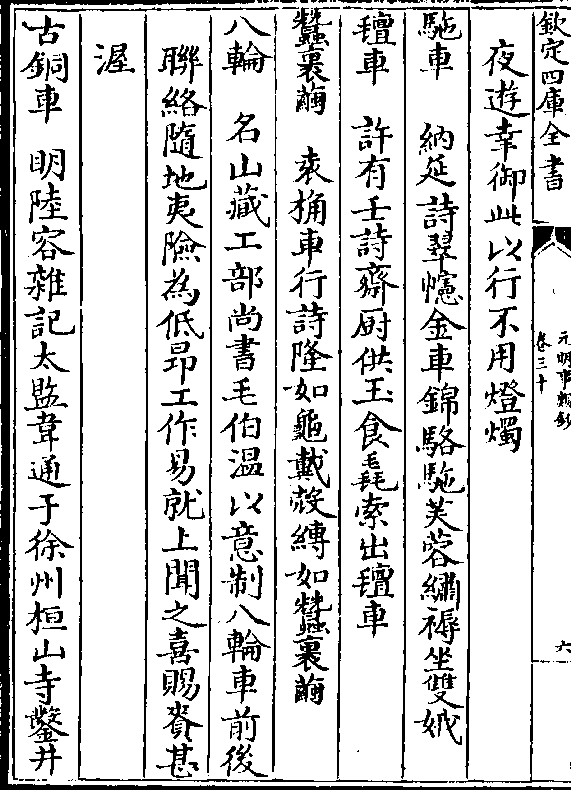 欽定四庫全書
元明事類鈔
卷三十
六
夜遊幸御此以行不用燈燭
駞車　納延詩翠幰金車錦駱駞芙蓉繡褥坐雙娥
氊車　許有壬詩齋厨供玉食毳索出氊車
蠶裹繭　袁桷車行詩隆如龜戴殻縳如蠶裹繭
八輪　名山藏工部尚書毛伯溫以意制八輪車前後
聯絡隨地夷險為低昂工作易就上聞之喜賜賚甚
渥
古銅車　明陸容雜記太監韋通于徐州桓山寺鑿井